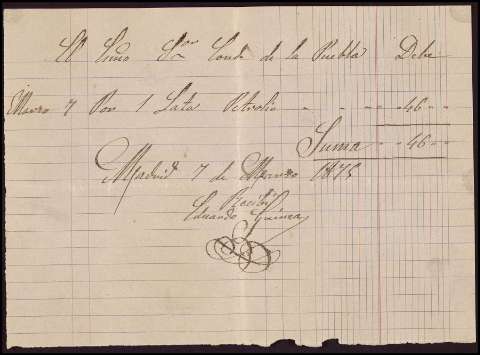 El Exmo Sor Conde de la Puebla Debe
Marzo 7 Por 1 Lata Petroleo - - - - 46 - -
Suma - - 46 - -
Madrid 7 de Marzo 1875
Recibí
Eduardo Guinea